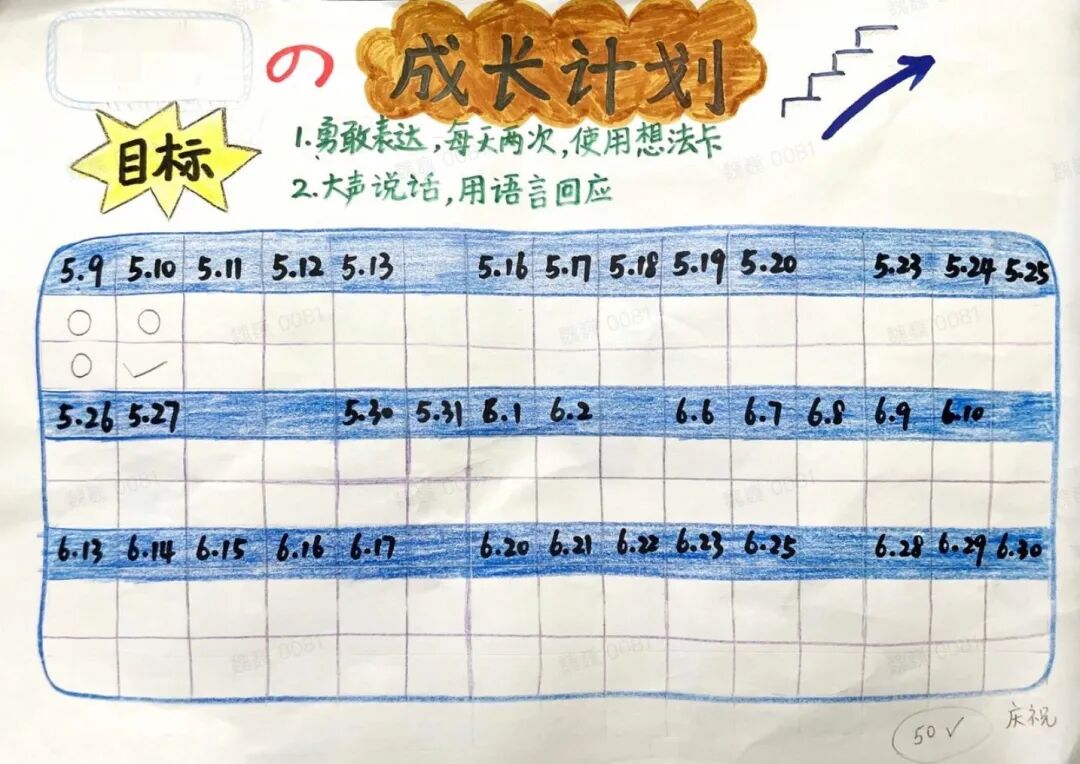 の
成长计划
目标
1.勇敢表达,每天两次,使用想法卡
2.大声说话,用语言回应
5.9 5.10 5.11 5.12 5.13 5.16 5.17 5.18 5.19 5.20 5.23 5.24 5.25
5.26 5.27 5.30 5.31 6.1 6.2 6.6 6.7 6.8 6.9 6.10
6.13 6.14 6.15 6.16 6.17 6.20 6.21 6.22 6.23 6.25 6.28 6.29 6.30
50✓ 庆祝